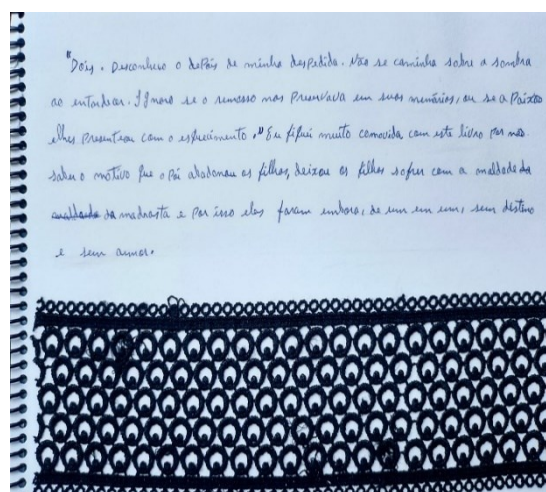 "Dois. Desconheço o depois de minha despedida. Não se caminha sobre a sombra
ao entardecer. Ignoro se o remorso nos preservava em suas memórias, ou se a Paixão
lhes presenteou com o esquecimento." Eu fiquei muito comovida com este livro por não
saber o motivo que o Pai abandonou os filhos, deixou os filhos sofrer com a maldade da
da madrasta e por isso eles foram embora, de um em um, sem destino
e sem amor.